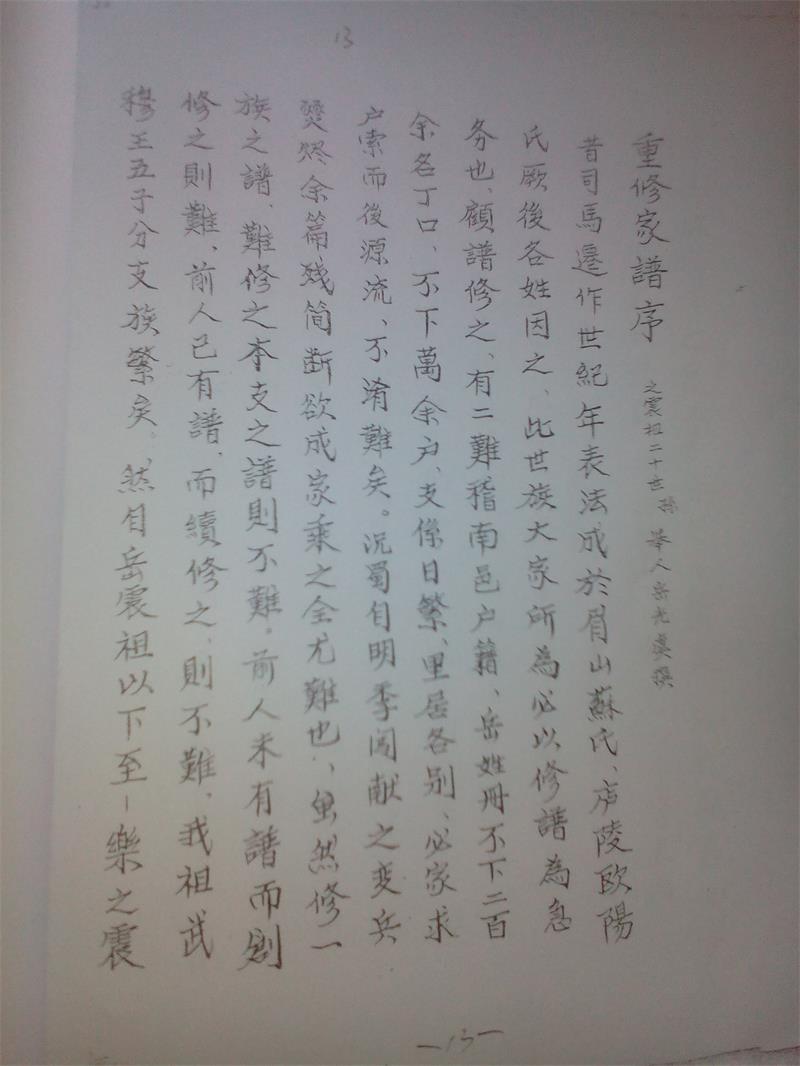 13
重修家譜序
之震祖二十世孫 舉人岳光虞撰
昔司馬遷作世紀年表法成於眉山蘇氏、庐陵欧陽
氏厥後各姓因之、此世族大家所為必以修譜為急
务也、顧譜修之、有二難稽南邑户籍、岳姓册不下二百
余名丁口、不下萬余户、支係日繁、里居各别、必家求
户索而後源流、不淆難矣。况蜀自明季闯献之变兵
燹烬余篇残简断欲成家乘之全尤難也、虽然修一
族之譜、難修之本支之譜則不難。前人未有譜而剏
修之則難、前人已有譜、而續修之、則不難、我祖武
穆王五子分支族繁矣、然自岳震祖以下至-樂之震
-13-